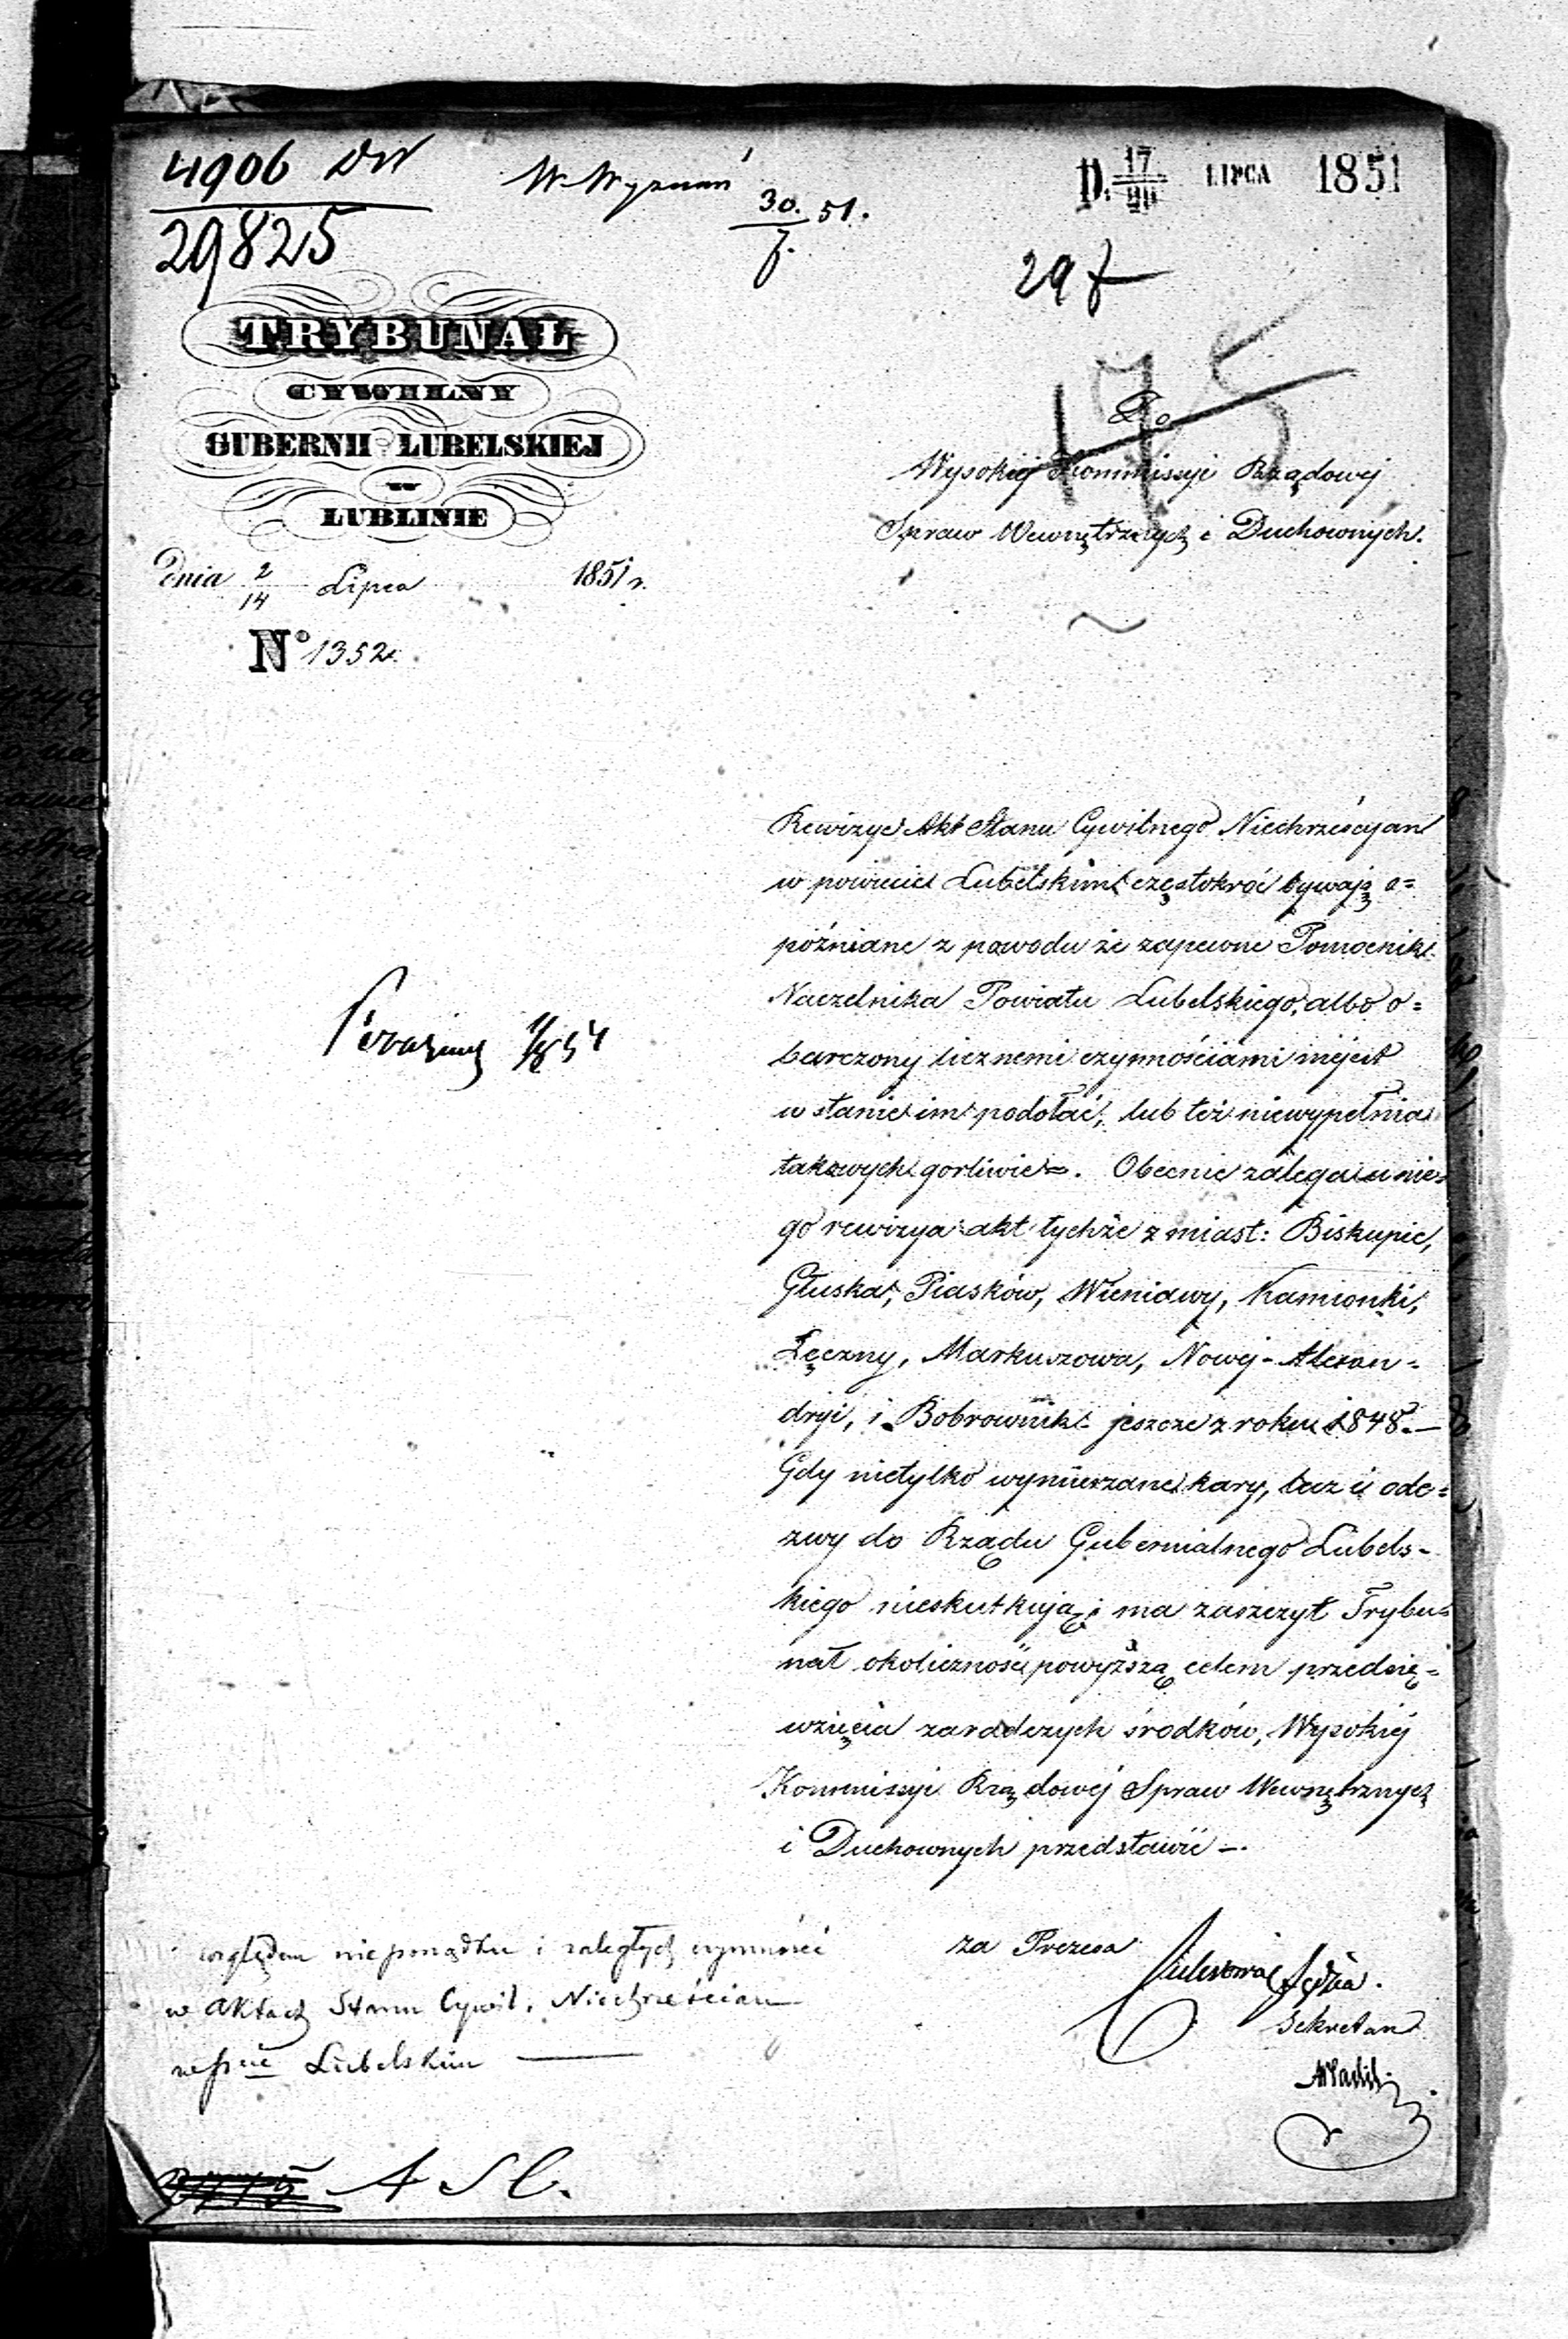 4906 DW
29825
W. Wyznań
30./7. 51.
D. 17/29 LIPCA 1851
29 7
175
TRYBUNAŁ
CYWILNY
GUBERNII LUBELSKIEJ
w
LUBLINIE
Dnia 2/14 Lipca 1851 r.
No 1352.
Do
Wysokiej Kommissyi Rządowej
Spraw Wewnętrznych i Duchownych.
Rewizye Akt Stanu Cywilnego Niechrześcijan
w powiecie Lubelskim częstokroć bywają o=
późniane z powodu że zapewne Pomocnik
Naczelnika Powiatu Lubelskiego, albo o=
barczony licznemi czynnościami niejest
w stanie im podołać, lub też niewypełnia
takowych gorliwie. Obecnie zalega u nie=
go rewizya akt tychże z miast: Biskupic,
Głuska, Piasków, Wieniawy, Kamionki,
Łęczny, Markuszowa, Nowej-Alexan=
dryi, i Bobrownik jeszcze z roku 1848.—
Gdy nietylko wymierzane kary, lecz i ode=
zwy do Rządu Gubernialnego Lubels-
kiego nieskutkują; ma zaszczyt Trybu=
nał okoliczność powyższą celem przedsię=
wzięcia zaradczych środków, Wysokiej
Kommissyi Rządowej Spraw Wewnętrznych
i Duchownych przedstawić —.
względem nieporządku i zaległych czynności
w Aktach Stanu Cywil. Niechrześcian
w pcie Lubelskim —
za Prezesa
Sędzia.
Sekretarz
A S C.